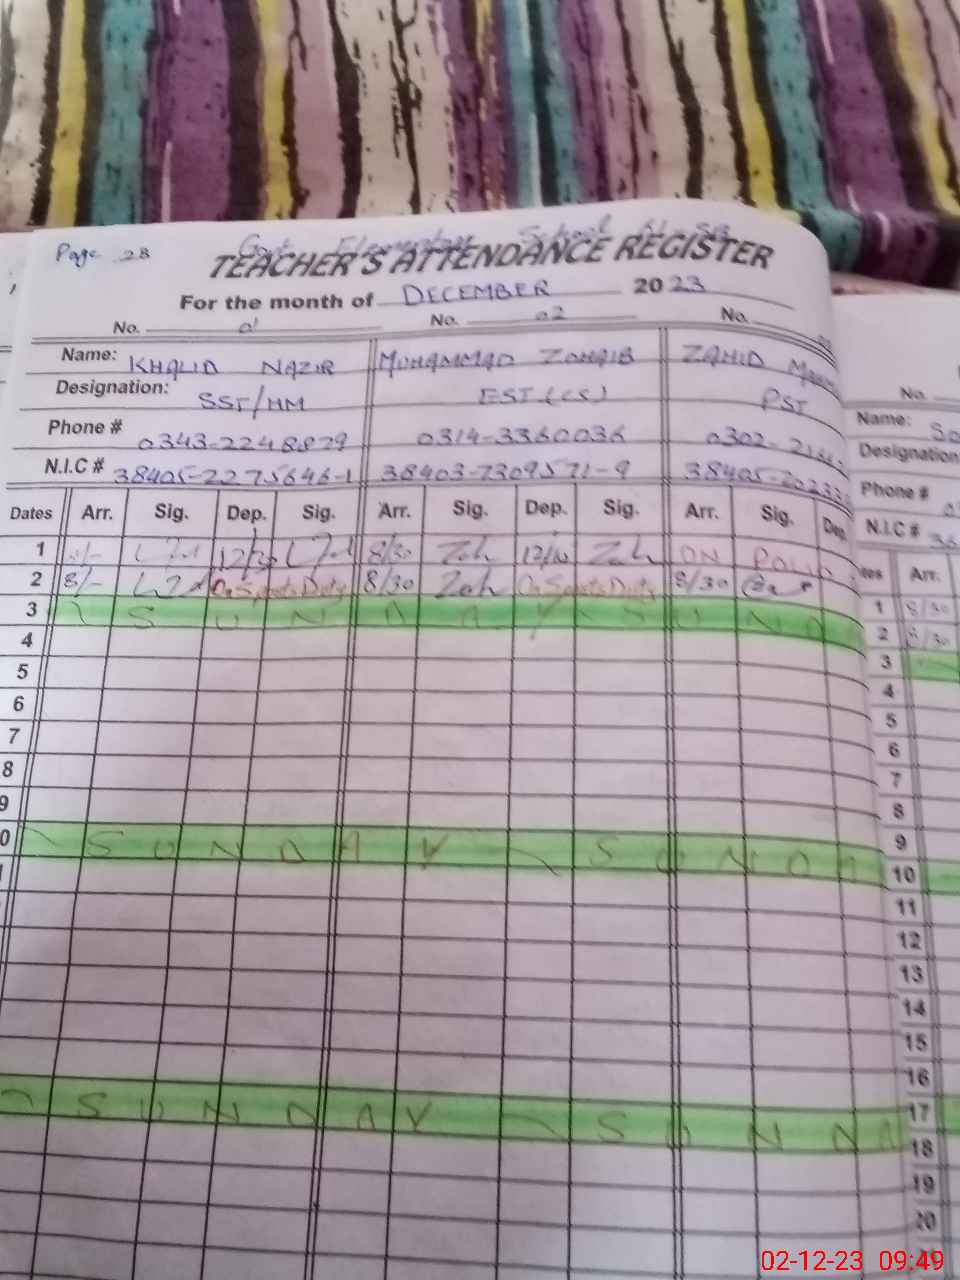 Page 28
Govt. Elementary School
TEACHER'S ATTENDANCE REGISTER
For the month of DECEMBER 2023
No. 01 No. 02 No.
Name: KHALID NAZIR MUHAMMAD ZOHAIB ZAHID
Designation: SST/HM EST (CS) PST
Phone # 0343-2248829 0314-3360036 0302-
N.I.C # 38405-2275646-1 38403-7309571-9 38405-
Dates Arr. Sig. Dep. Sig. Arr. Sig. Dep. Sig. Arr. Sig. Dep.
1 12/30 8/30 ON
2 8/- On Sports Duty 8/30 On Sports Duty 8/30
3 SUNDAY SUND
4
5
6
7
8
9
0 SUNDAY SUNDA
SUNDAY SUNDA
No.
Name:
Designation
Phone #
N.I.C #
Arr.
1 8/30
2 8/30
3
4
5
6
7
8
9
10
11
12
13
14
15
16
17
18
19
20
02-12-23 09:49